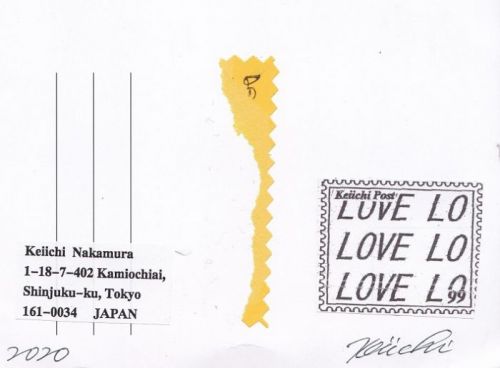 Keiichi Nakamura
1-18-7-402 Kamiochiai,
Shinjuku-ku, Tokyo
161-0034 JAPAN
2020
Keiichi Post
LOVE LO
LOVE LO
LOVE LO
99
Keiichi